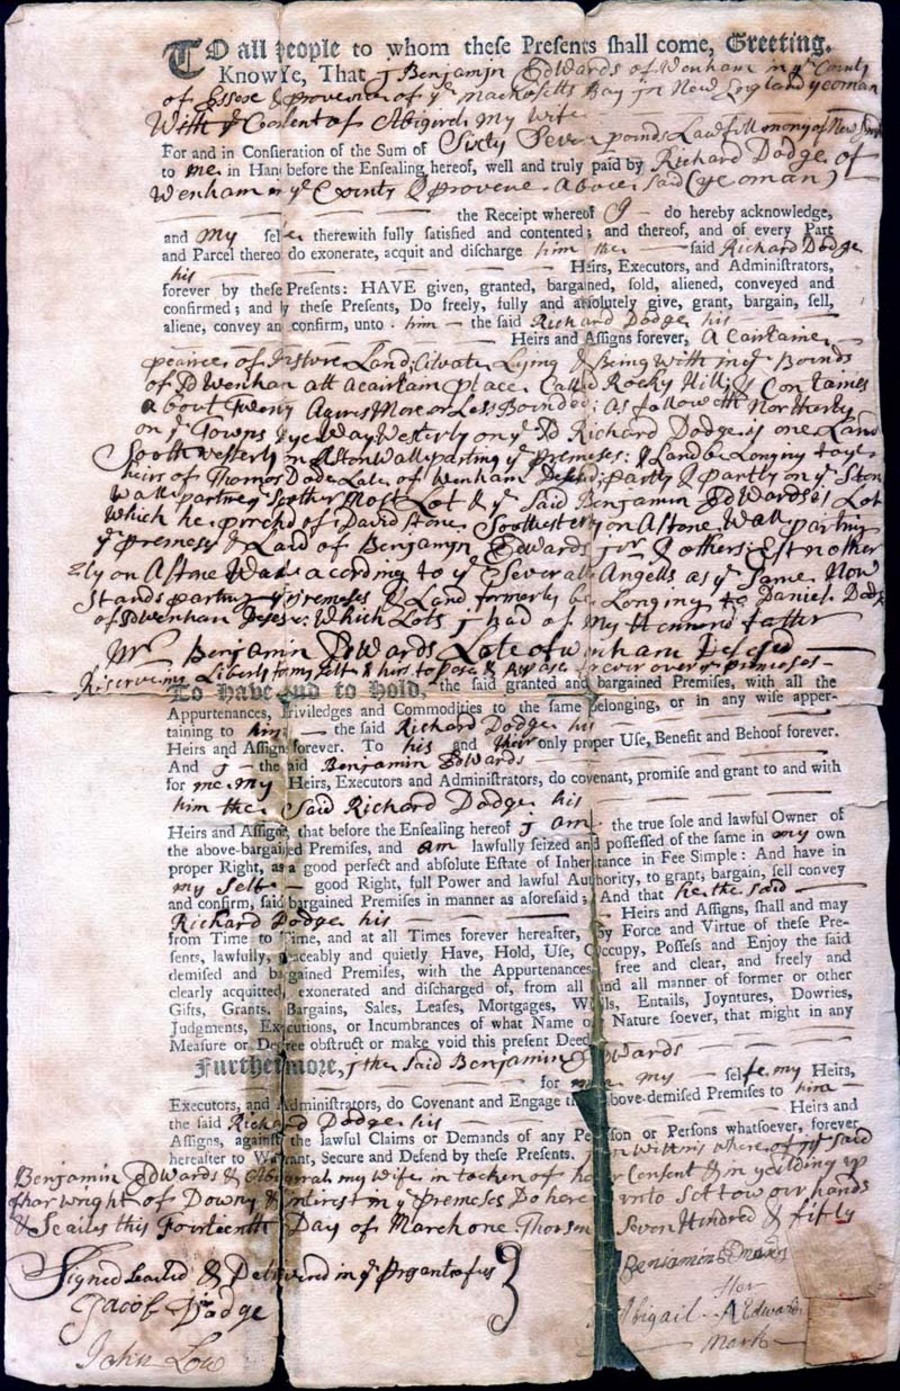 TO all people to whom these Presents shall come, Greeting.
Know Ye, That I Benjamin Edwards of Wenham in ye County
of Essex & provence of ye Bay In New England yeoman
With ye Consent of Abigail my wife
For and in Consieration of the Sum of Sixty Seven pounds Lawfull mony of New
to me in Hand before the Ensealing hereof, well and truly paid by Richard Dodge of
Wenham in ye County & provence Above Said (yeoman)
the Receipt whereof I do hereby acknowledge,
and my self therewith fully satisfied and contented; and thereof, and of every Part
and Parcel thereof do exonerate, acquit and discharge him the said Richard Dodge
his Heirs, Executors, and Administrators,
forever by these Presents: HAVE given, granted, bargained, sold, aliened, conveyed and
confirmed; and by these Presents, Do freely, fully and absolutely give, grant, bargain, sell,
aliene, convey and confirm, unto him the said Richard Dodge his
Heirs and Assigns forever, A Cairtaine
peairce of Pasture Land; Lying & Being With in ye Bounds
of sd Wenham att a cairtain place Called Rocky Hill; & Containes
about Twenty Acures More or Less Bounded: As followeth Northerly
on ye Towns Westerly on ye sd Richard Dodge is one Land
Southwesterly on A Ston Wall parting ye premeses: & Land be Longing to ye
heirs of Thomas Dodge Late of Wenham partly & partly on ye Ston
Wall parting Most Lot & ye Said Benjamin Edwards Lot
Which he of David Stone on A Stone Wall parting
ye premeses & Land of Benjamin Edwards jnr & others:
on A Stone Wall acording to ye Severall Angells as ye Same Now
Stands parting ye premeses & Land formerly be Longing to Daniel Dodge
of sd wenham Which Lots I had of my Honnerd father
Mr Benjamin Edwards Late of wenham
Liberty for my self & hirs to pass & forever over ye premeses
To Have and to Hold, the said granted and bargained Premises, with all the
Appurtenances, Priviledges and Commodities to the same belonging, or in any wise apper-
taining to him the said Richard Dodge his
Heirs and Assigns forever. To his and their only proper Use, Benefit and Behoof forever.
And I the said Benjamin Edwards
for me my Heirs, Executors and Administrators, do covenant, promise and grant to and with
him the Said Richard Dodge his
Heirs and Assigns, that before the Ensealing hereof I am the true sole and lawful Owner of
the above-bargained Premises, and am lawfully seized and possessed of the same in my own
proper Right, as a good perfect and absolute Estate of Inheritance in Fee Simple: And have in
my Self good Right, full Power and lawful Authority, to grant, bargain, sell convey
and confirm, said bargained Premises in manner as aforesaid; And that he the said
Richard Dodge his Heirs and Assigns, shall and may
from Time to Time, and at all Times forever hereafter, by Force and Virtue of these Pre-
sents, lawfully, peaceably and quietly Have, Hold, Use, Occupy, Possess and Enjoy the said
demised and bargained Premises, with the Appurtenances, free and clear, and freely and
clearly acquitted, exonerated and discharged of, from all and all manner of former or other
Gifts, Grants, Bargains, Sales, Leases, Mortgages, Wills, Entails, Joyntures, Dowries,
Judgments, Executions, or Incumbrances of what Name or Nature soever, that might in any
Measure or Degree obstruct or make void this present Deed.
Furthermore, I the Said Benjamin Edwards
for me my selfe my Heirs,
Executors, and Administrators, do Covenant and Engage the above-demised Premises to him
the said Richard Dodge his Heirs and
Assigns, against the lawful Claims or Demands of any Person or Persons whatsoever, forever
hereafter to Warrant, Secure and Defend by these Presents. In Witnis where of ye said
Benjamin Edwards & Abigail my Wife in tocken of her Consent & in yeilding up
of har wright of Dowry & Interist in ye Premeses Do here unto Set tow our hands
& Seailes this Fourteenth Day of March one Seven Hundred & fifty
Signed Sealed & Delivered in ye of us
Benjamin Edwards
Jacob Dodge
Her
Abigail A Edwards
mark
John Low